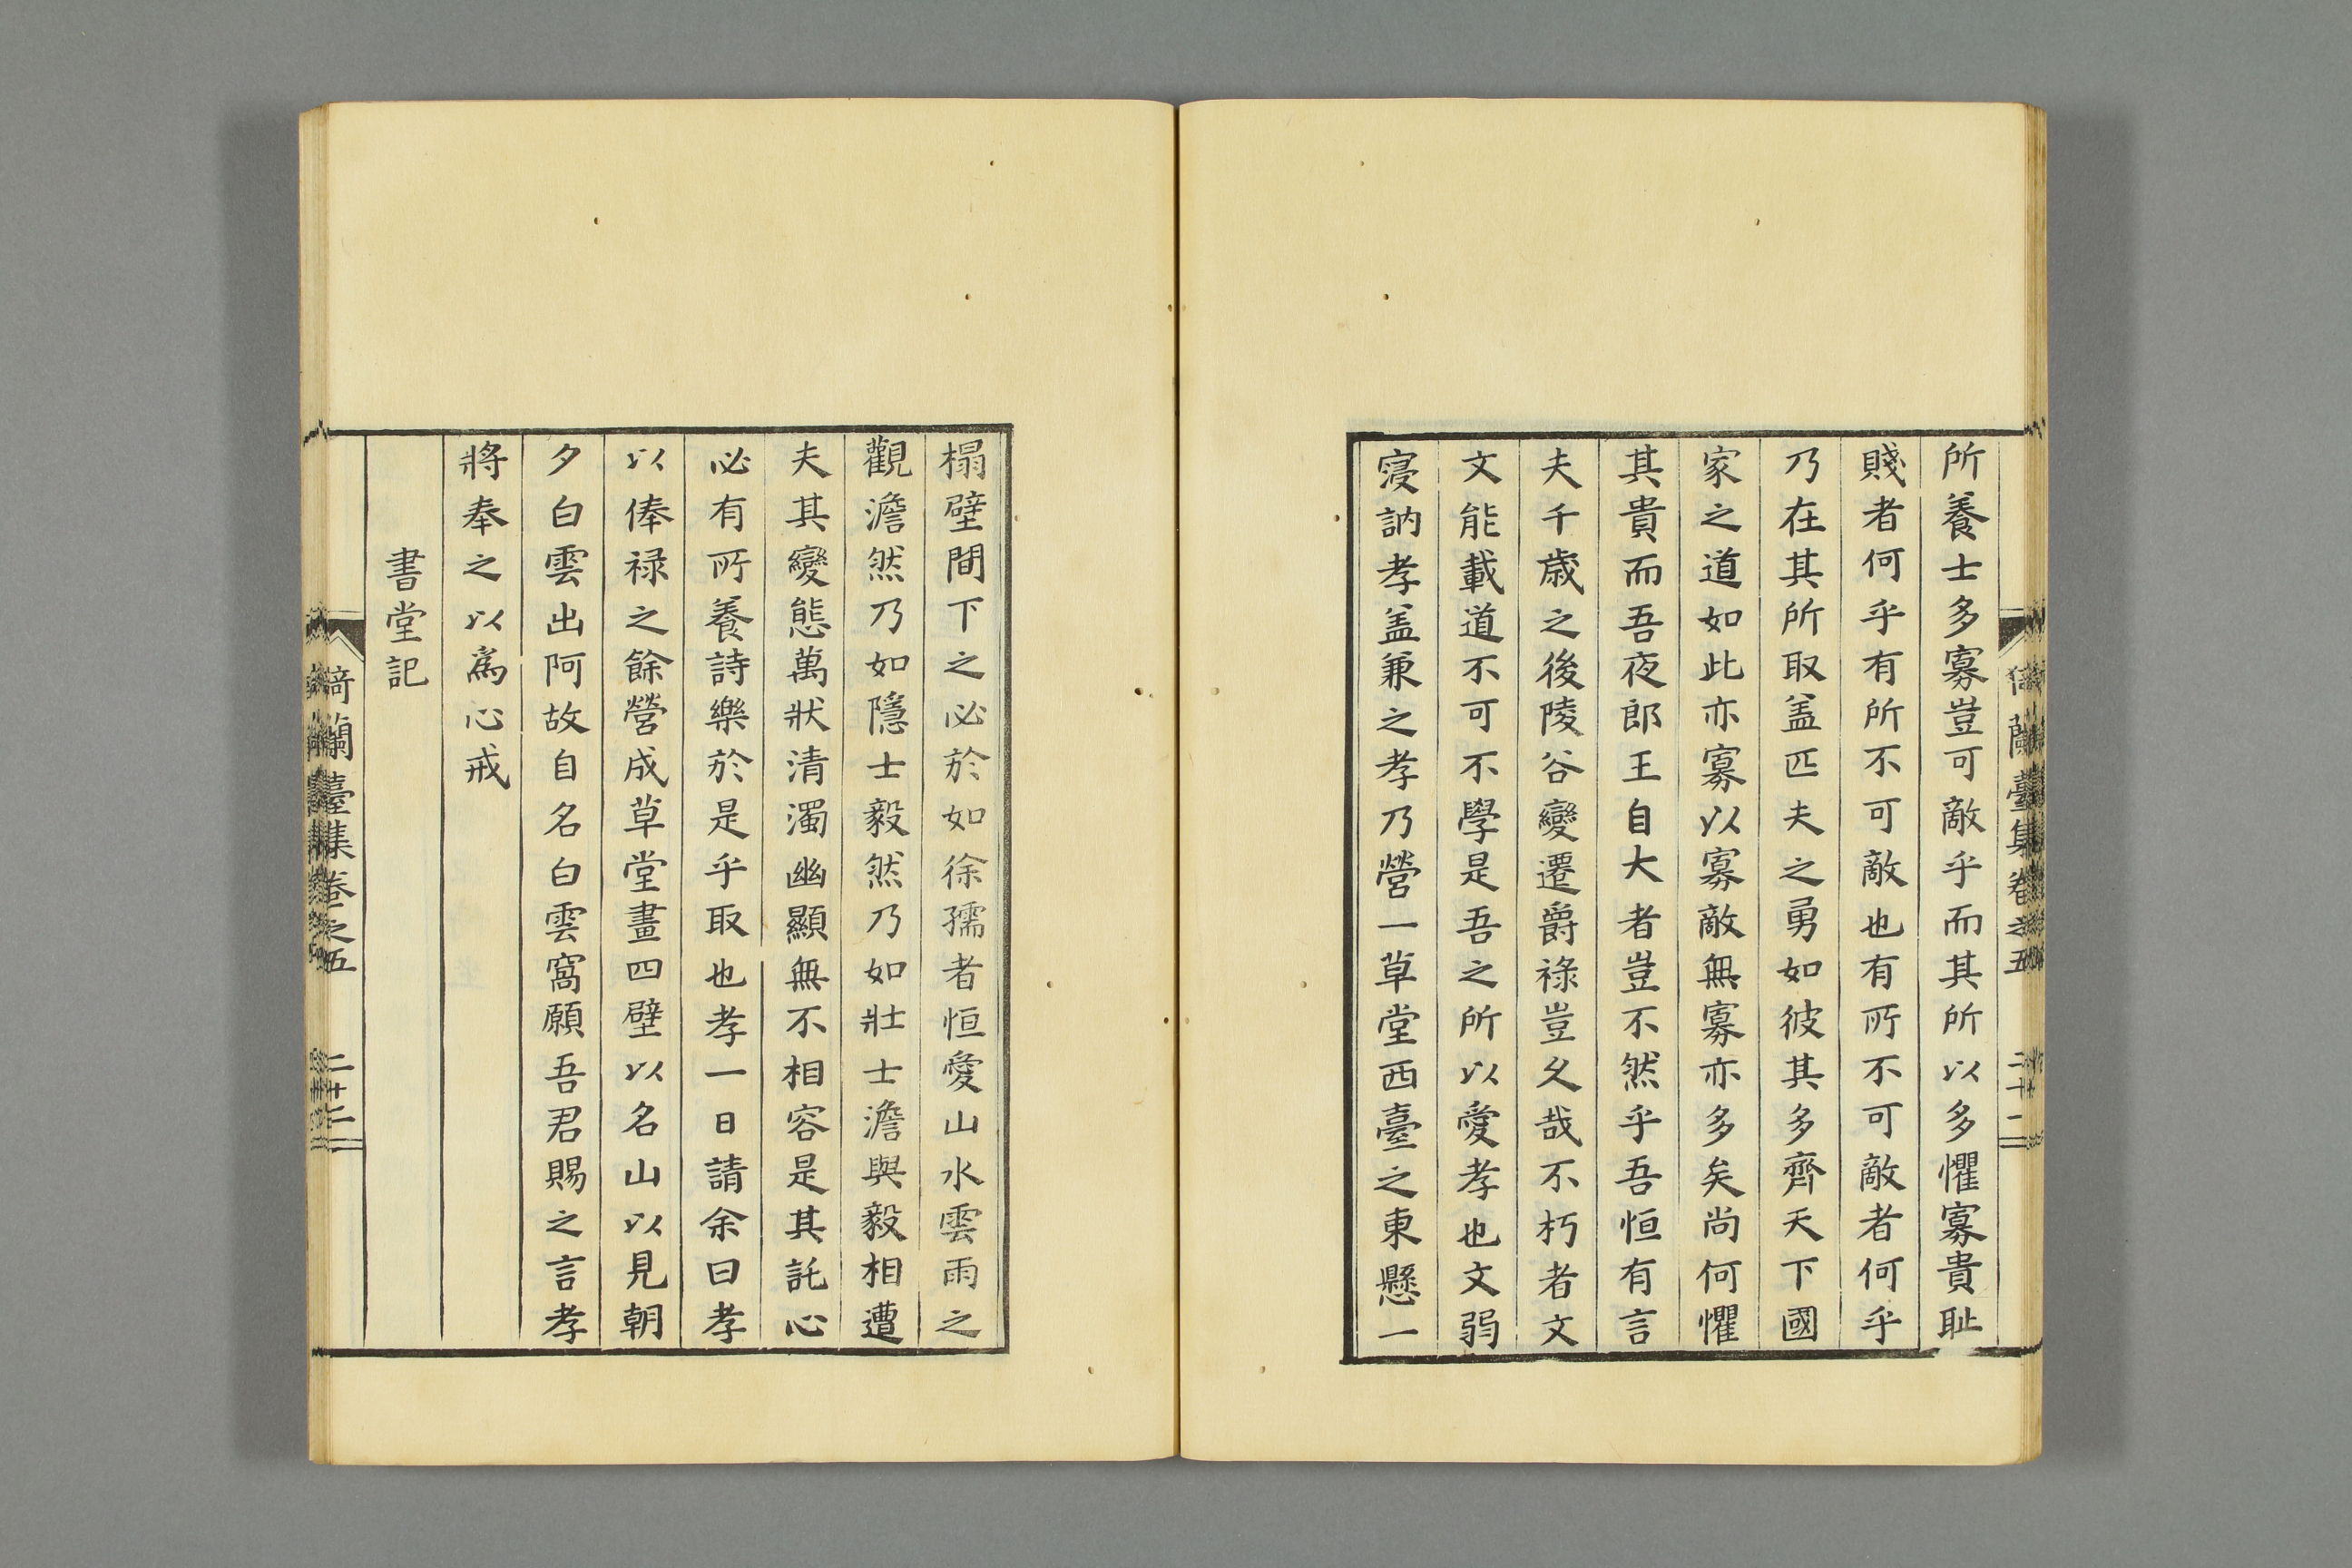 所養士多寡豈可敵乎而其所以多懼寡貴耻
賤者何乎有所不可敵也有所不可敵者何乎
乃在其所取盖匹夫之勇如彼其多齊天下國
家之道如此亦寡以寡敵無寡亦多矣尚何懼
其貴而吾夜郎王自大者豈不然乎吾恒有言
夫千歳之後陵谷變遷爵祿豈久哉不朽者文
文能載道不可不學是吾之所以愛孝也文弱
寖訥孝盖兼之孝乃營一草堂西臺之東懸一
榻壁間下之必於如徐孺者恒愛山水雲雨之
觀澹然乃如隱士毅然乃如壯士澹與毅相遭
夫其變態萬狀清濁幽顯無不相容是其託心
必有所養詩樂於是乎取也孝一日請余曰孝
以俸祿之餘營成草堂畫四壁以名山以見朝
夕白雲出阿故自名白雲窩願吾君賜之言孝
將奉之以爲心戒
書堂記
蘭臺集卷之五 二十二